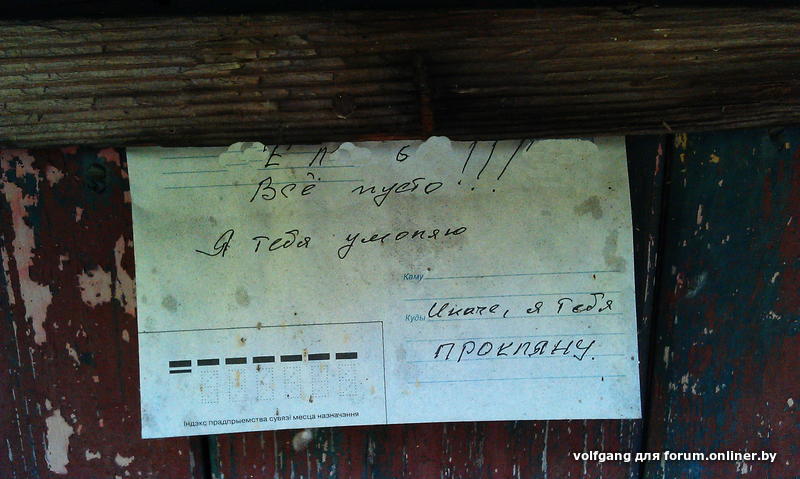 Всё пусто...
Я тебя умоляю
Каму
Куды Иначе, я тебя
ПРОКЛЯНУ.
Індэкс прадпрыемства сувязі месца назначання
volfgang для forum.onliner.by